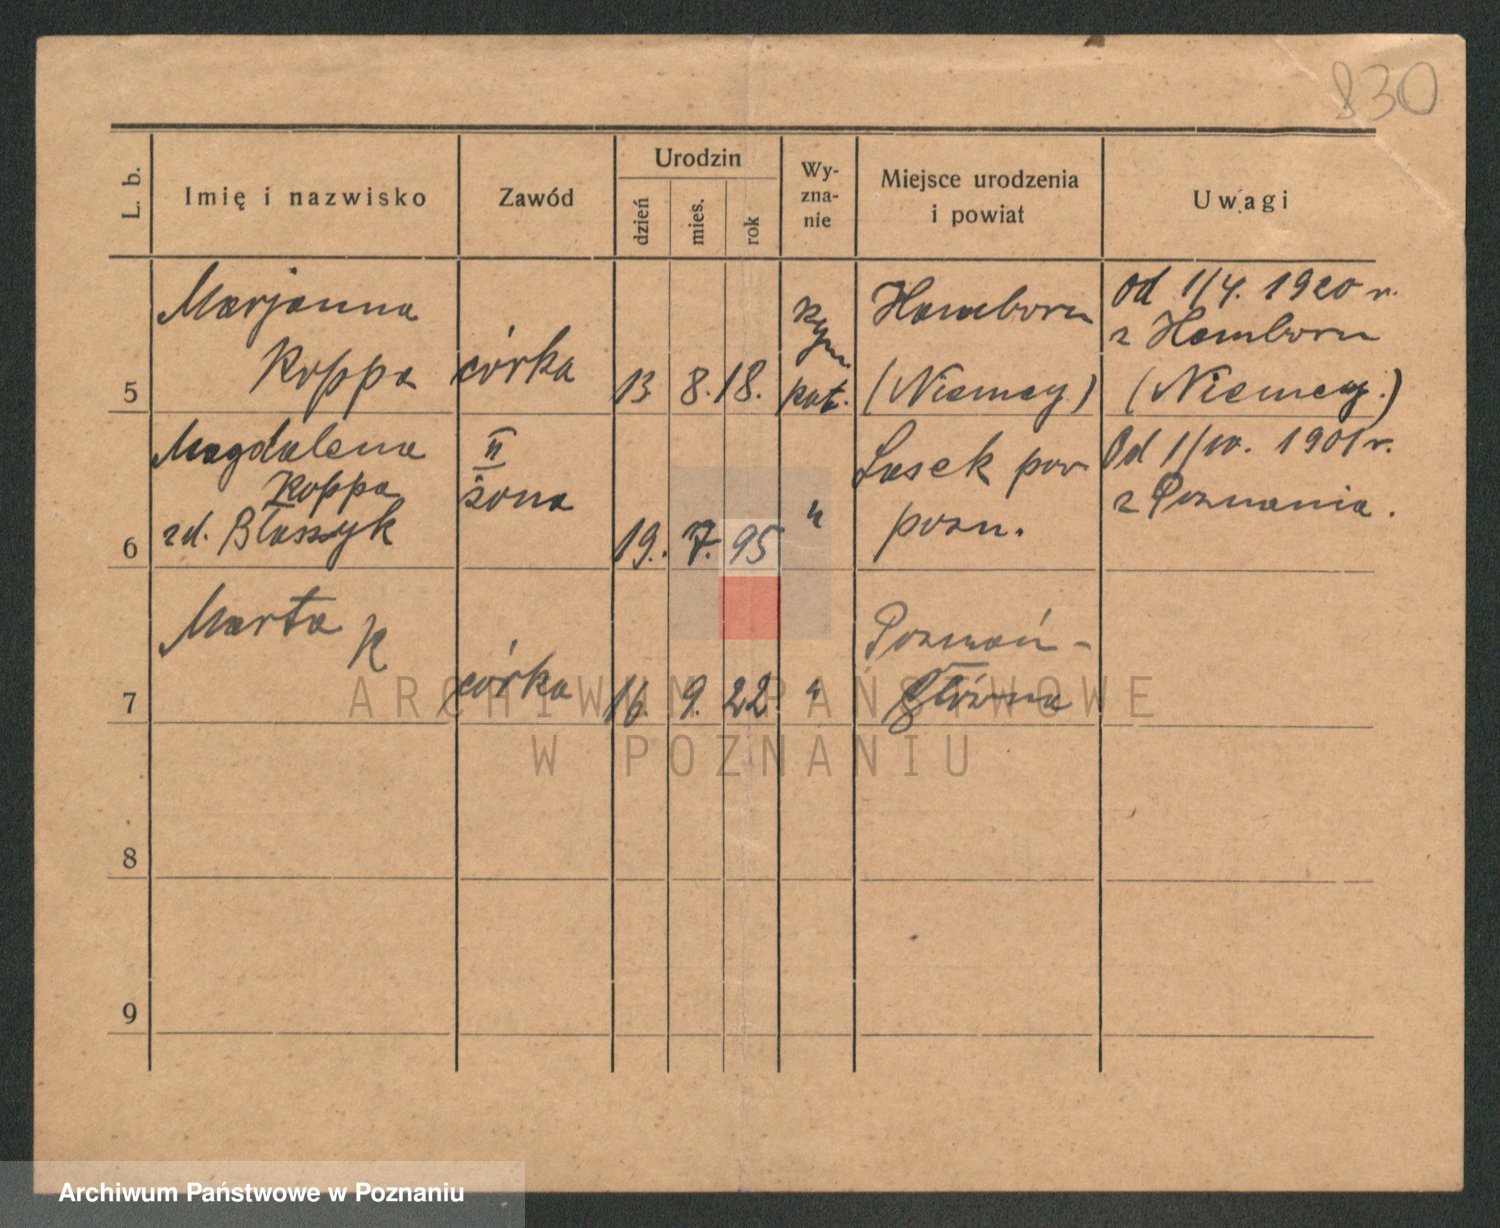 830
L. b.
Imię i nazwisko
Zawód
Urodzin
dzień
mies.
rok
Wy-
zna-
nie
Miejsce urodzenia
i powiat
Uwagi
5
Marjanna
Koppa
córka
13. 8. 18.
rzym.
kat.
Hamborn
(Niemcy)
od 1/4. 1920 r.
z Hamborn
(Niemcy.)
6
Magdalena
Koppa
zd. Błaszyk
II
żona
19. 7. 95
"
Lasek pow.
pozn.
Od 1/10. 1901 r.
z Poznania.
7
Marta K
córka
16. 9. 22.
"
Poznań-
Główna
8
9
ARCHIWUM PAŃSTWOWE
W POZNANIU
Archiwum Państwowe w Poznaniu